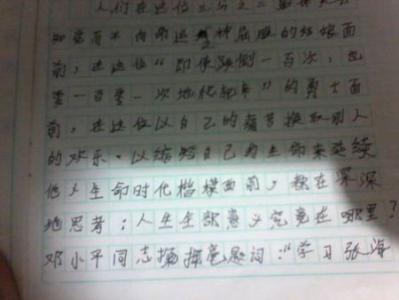 人们在这位
如
前,在这位“即使跌倒一百次,也
要一百零一次地站起来”的勇士面
前,在这位以自己的痛苦换取别人
的欢乐,以缩短自己的生命来延续
他人生命时代楷模面前,我在深深
地思考:人生生命意义究竟在哪里?
邓小平同志挥毫题词:“学习张海